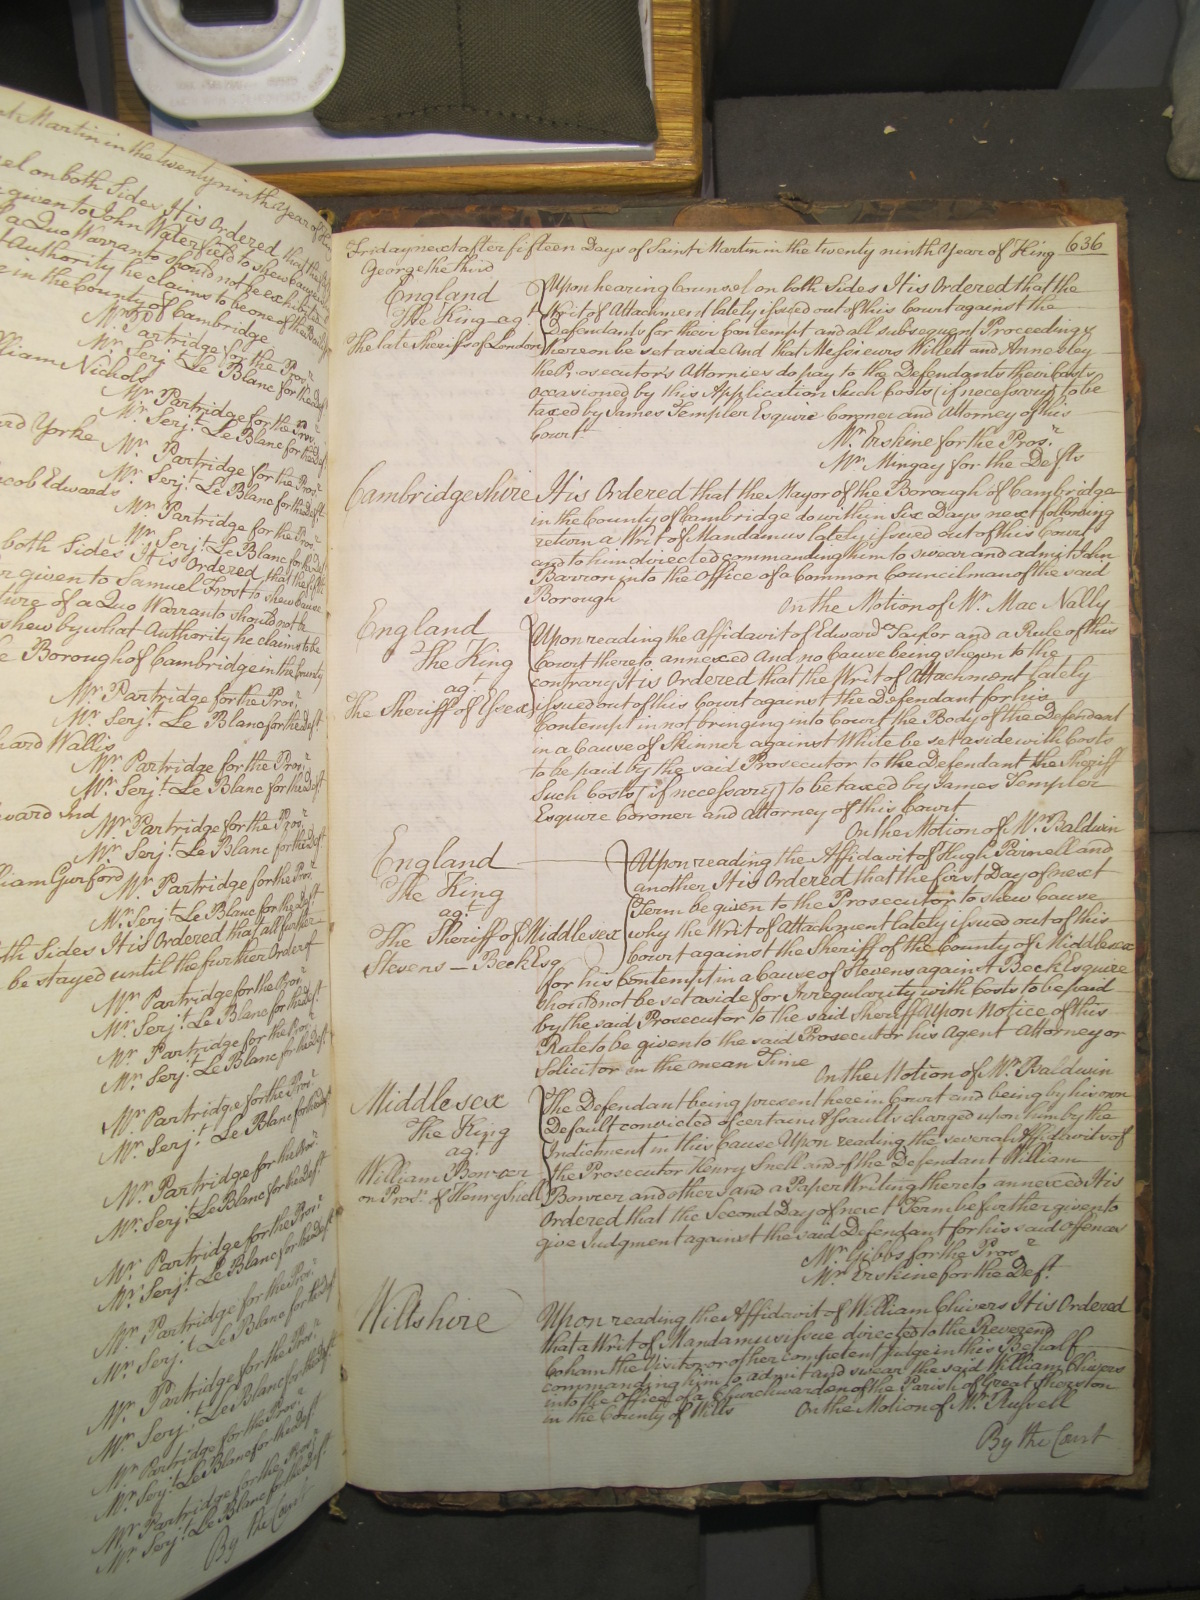 Martin in the twenty ninth Year of King
on both Sides It is Ordered that the
given to John Waterfield to shew Cause
a Quo Warranto should not be exhibited
Authority he claims to be one of the
in the County of Cambridge
Partridge for the Pros.r
Mr. Serj.t Le Blanc for the Def.t
William Nichols
Mr. Partridge for the Pros.r
Mr. Serj.t Le Blanc for the Def.t
Yorke
Mr. Partridge for the Pros.r
Mr. Serj.t Le Blanc for the Def.t
Jacob Edwards
Mr. Partridge for the Pros.r
Mr. Serj.t Le Blanc for the Def.t
both Sides It is Ordered that the
given to Samuel Frost to shew Cause
nature of a Quo Warranto should not
shew by what Authority he claims to be
Borough of Cambridge in the County
Mr. Partridge for the Pros.r
Mr. Serj.t Le Blanc for the Def.t
Wallis
Mr. Partridge for the Pros.r
Mr. Serj.t Le Blanc for the Def.t
Edward Ind
Mr. Partridge for the Pros.r
Mr. Serj.t Le Blanc for the Def.t
William Gurford
Mr. Partridge for the Pros.r
Mr. Serj.t Le Blanc for the Def.t
both Sides It is Ordered that all further
be stayed until the further Order of
Mr. Partridge for the Pros.r
Mr. Serj.t Le Blanc for the Def.t
Mr. Partridge for the Pros.r
Mr. Serj.t Le Blanc for the Def.t
Mr. Partridge for the Pros.r
Mr. Serj.t Le Blanc for the Def.t
Mr. Partridge for the Pros.r
Mr. Serj.t Le Blanc for the Def.t
Mr. Partridge for the Pros.r
Mr. Serj.t Le Blanc for the Def.t
Mr. Partridge for the Pros.r
Mr. Serj.t Le Blanc for the Def.t
Mr. Partridge for the Pros.r
Mr. Serj.t Le Blanc for the Def.t
Mr. Partridge for the Pros.r
Mr. Serj.t Le Blanc for the Def.t
Mr. Partridge for the Pros.r
Mr. Serj.t Le Blanc for the Def.t
By the Court
Friday next after fifteen Days of Saint Martin in the twenty ninth Year of King 636
George the third
England
The King ag.t
The late Sheriffs of London
Upon hearing Counsel on both Sides It is Ordered that the
Writ of Attachment lately issued out of this Court against the
Defendants for their Contempt and all subsequent Proceedings
thereon be set aside And that Messieurs Willett and Annesley
the Prosecutor's Attornies do pay to the Defendants their Costs
occasioned by this Application Such Costs (if necessary) to be
taxed by James Templer Esquire Coroner and Attorney of this
Court
Mr. Erskine for the Pros.r
Mr Mingay for the Defts
Cambridgeshire It is Ordered that the Mayor of the Borough of Cambridge
in the County of Cambridge do within Six Days next following
return a Writ of Mandamus lately issued out of this Court
and to him directed commanding him to swear and admit John
Barron into the Office of a Common Councilman of the said
Borough
On the Motion of Mr. Mac Nally
England
The King
ag.t
The Sheriff of Essex
Upon reading the Affidavit of Edward Taylor and a Rule of this
Court thereto annexed And no Cause being shewn to the
contrary It is Ordered that the Writ of Attachment lately
issued out of this Court against the Defendant for his
Contempt in not bringing into Court the Body of the Defendant
in a Cause of Skinner against White be set aside with Costs
to be paid by the said Prosecutor to the Defendant the Sheriff
Such Costs (if necessary) to be taxed by James Templer
Esquire Coroner and Attorney of this Court
On the Motion of Mr. Baldwin
England
The King
ag.t
The Sheriff of Middlesex
Stevens — Beck Esq
Upon reading the Affidavit of Hugh Parnell and
another It is Ordered that the first Day of next
Term be given to the Prosecutor to shew Cause
why the Writ of Attachment lately issued out of this
Court against the Sheriff of the County of Middlesex
for his Contempt in a Cause of Stevens against Beck Esquire
should not be set aside for Irregularity with Costs to be paid
by the said Prosecutor to the said Sheriff Upon Notice of this
Rule to be given to the said Prosecutor his Agent Attorney or
Solicitor in the mean Time
On the Motion of Mr. Baldwin
Middlesex
The King
ag.t
William Bowzer
on Pros.n of Henry Snell
The Defendant being present here in Court and being by his own
Default convicted of certain Assaults charged upon him by the
Indictment in this Cause Upon reading the several Affidavits of
the Prosecutor Henry Snell and of the Defendant William
Bowzer and others and a Paper Writing thereto annexed It is
Ordered that the Second Day of next Term be further given to
give Judgment against the said Defendant for his said Offences
Mr. Gibbs for the Pros.r
Mr. Erskine for the Def.t
Wiltshire
Upon reading the Affidavit of William Chivers It is Ordered
that a Writ of Mandamus issue directed to the Reverend
Coham the Visitor or other competent Judge in this Behalf
commanding him to admit and swear the said William Chivers
into the Office of a Churchwarden of the Parish of Great Sherston
in the County of Wilts
On the Motion of Mr. Russell
By the Court